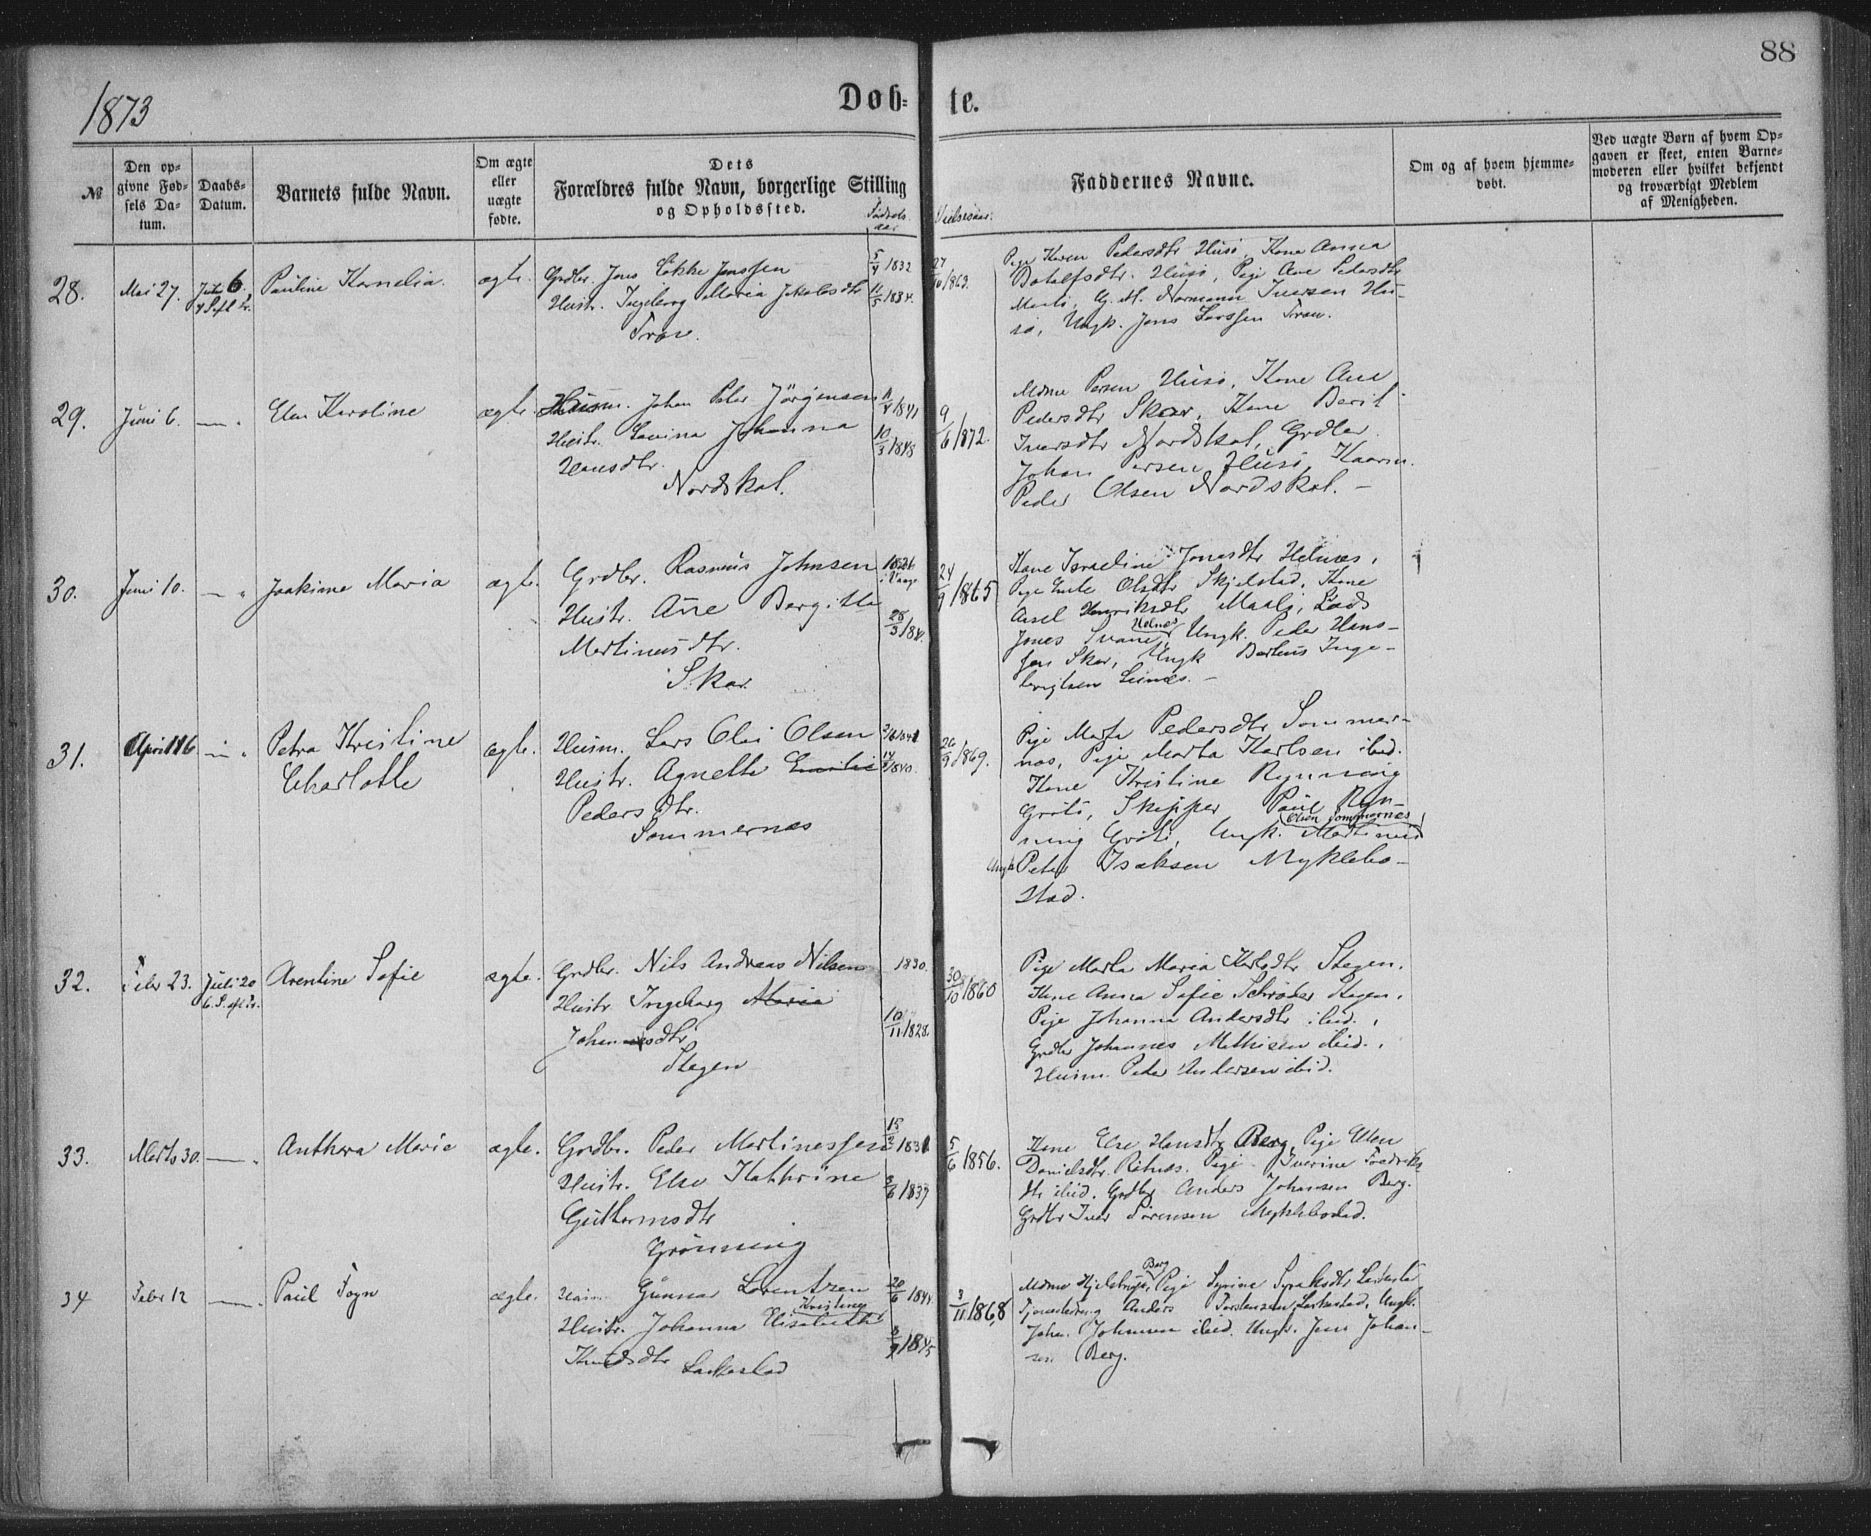 88
1873
Døb-te.
№
Den opgivne Fødsels Datum.
Daabs-Datum.
Barnets fulde Navn.
Om ægte eller uægte fødte.
Dets Forældres fulde Navn, borgerlige Stilling og Opholdssted.
Fødselsaar
Vielsesaar.
Faddernes Navne.
Om og af hvem hjemmedøbt.
Ved uægte Børn af hvem Opgaven er skeet, enten Barnemoderen eller hvilket bekjendt og troværdigt Medlem af Menigheden.
28.
Mai 27.
Juli 6
4 S. ef. Tr.
Pauline Kornelia
ægte.
Grdbr. Jens Løkke Jenssen
Hustr. Ingeborg Maria Jakobsdtr
Tran.
5/4 1832
11/5 1834.
27/ /1863.
Pige Karen Pedersdtr Husø, Kone Anna
Husø, Pige Ane Pedersdtr
G. M. Normann Iversen Hu-
sø, Ungk. Jens Larssen Tran.
29.
Juni 6.
— "
Elen Karoline
ægte.
Husm. Johan Peter Jørgensen
Hustr. Lovina Johanna
Hansdtr.
Nordskot.
11/4 1841
10/3 1848
9/6 1872.
Mdme Persen Husø, Kone Ane
Pedersdtr Skar, Kone Berit
Iversdtr Nordskot, Grdbr.
Johan Persen Husø, Kaarm.
Peder Olsen Nordskot. –
30.
Juni 10.
— "
Joakime Maria
ægte.
Grdbr. Rasmus Johnsen
Hustr. Ane Bergitte
Martinusdtr.
Skar
24/9 1865
Kone Israeline Jonasdtr Helnes,
Pige Olsdtr Skjelstad, Kone
Henriksdtr Lods
Jonas Svane Helnes, Ungk. Peder Hans-
sen Skar, Ungk Inge-
brigtsen
31.
April 16
— "
Petra Kristine
Charlotte
ægte.
Husm. Lars Olai Olsen
Hustr. Agnette Emilie
Pedersdtr.
Sommernes
26/9 1869.
Pige Marta Pedersdtr Sommer-
nes, Pige Marta Karlsen ibid.
Kone Kristine Rynning
Grøtø, Skipper Paul Ryn-
ning Grøtø, Ungk. Martinus Olsen Sommernes,
Ungk Peter Isaksen Myklebo-
stad.
32.
Febr 23.
Juli 20
6. S. ef. Tr.
Arentine Sofie
ægte.
Grdbr. Nils Andreas Nilsen
Hustr Ingeborg Maria
Johannesdtr
Stegen
1830.
10/11 1828.
30/10 1860
Pige Marta Maria Karlsdtr Stegen,
Kone Anna Sofie Schrøder Stegen,
Pige Johanna Andersdtr ibid.,
Grdbr Johannes Mathisen ibid.,
Husm. Peder Andersen ibid.
33.
Marts 30.
— "
Anthora Marie
ægte.
Grdbr. Peder Martinussen
Hustr. Else Kathrine
Guttormsdtr
Grønning
15/2 1831
3/6 1837
5/6 1856.
Kone Else Hansdtr Berg, Pige Ellen
Danielsdtr Røtnes, Pige Iverine Fredriks-
dtr ibid. Grdbr Anders Johansen Berg.
Grdbr Iver Sørensen Myklebostad.
34
Febr 12
— "
Paul Togn
ægte.
Gunnar Lorentzen
Hustr. Johanna Elisabeth Kristine
Knudsdtr Laskestad
20/6 1844
8/9 1845
3/11 1868
Mdme Hjelstrup, Berg Pige Syrine Isaksdtr Laskestad
Anders Torstensen Laskestad, Ungk.
Johan Johansen ibid. Ungk. Jens Johan-
sen Berg.